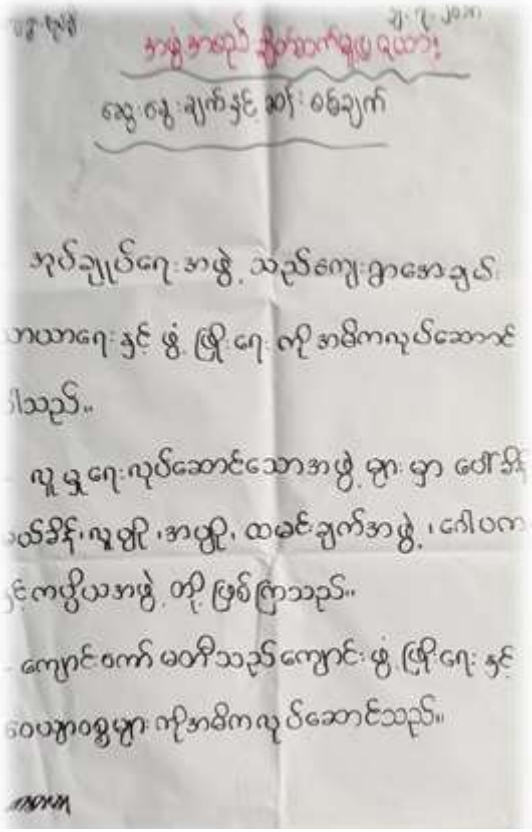 အဖွဲ့အစည်း ချိတ်ဆက်မှုပြ ဇယား၊
ဆွေးနွေးချက်နှင့် ဆန်းစစ်ချက်
အုပ်ချုပ်ရေးအဖွဲ့ သည်ကျေးရွာအေးချမ်း
သာယာရေးနှင့် ဖွံ့ဖြိုးရေး ကိုအဓိကလုပ်ဆောင်
ပါသည်။
လူမှုရေးလုပ်ဆောင်သောအဖွဲ့ များမှာ
လူပျို၊အပျို၊ ထမင်းချက်အဖွဲ့၊ ဂေါပက
နှင့်ကပ္ပိယအဖွဲ့ တို့ ဖြစ်ကြသည်။
ကျောင်းကော်မတီသည်ကျောင်းဖွံ့ဖြိုးရေး နှင့်
ဝေယျာဝစ္စများကိုအဓိကလုပ်ဆောင်သည်။